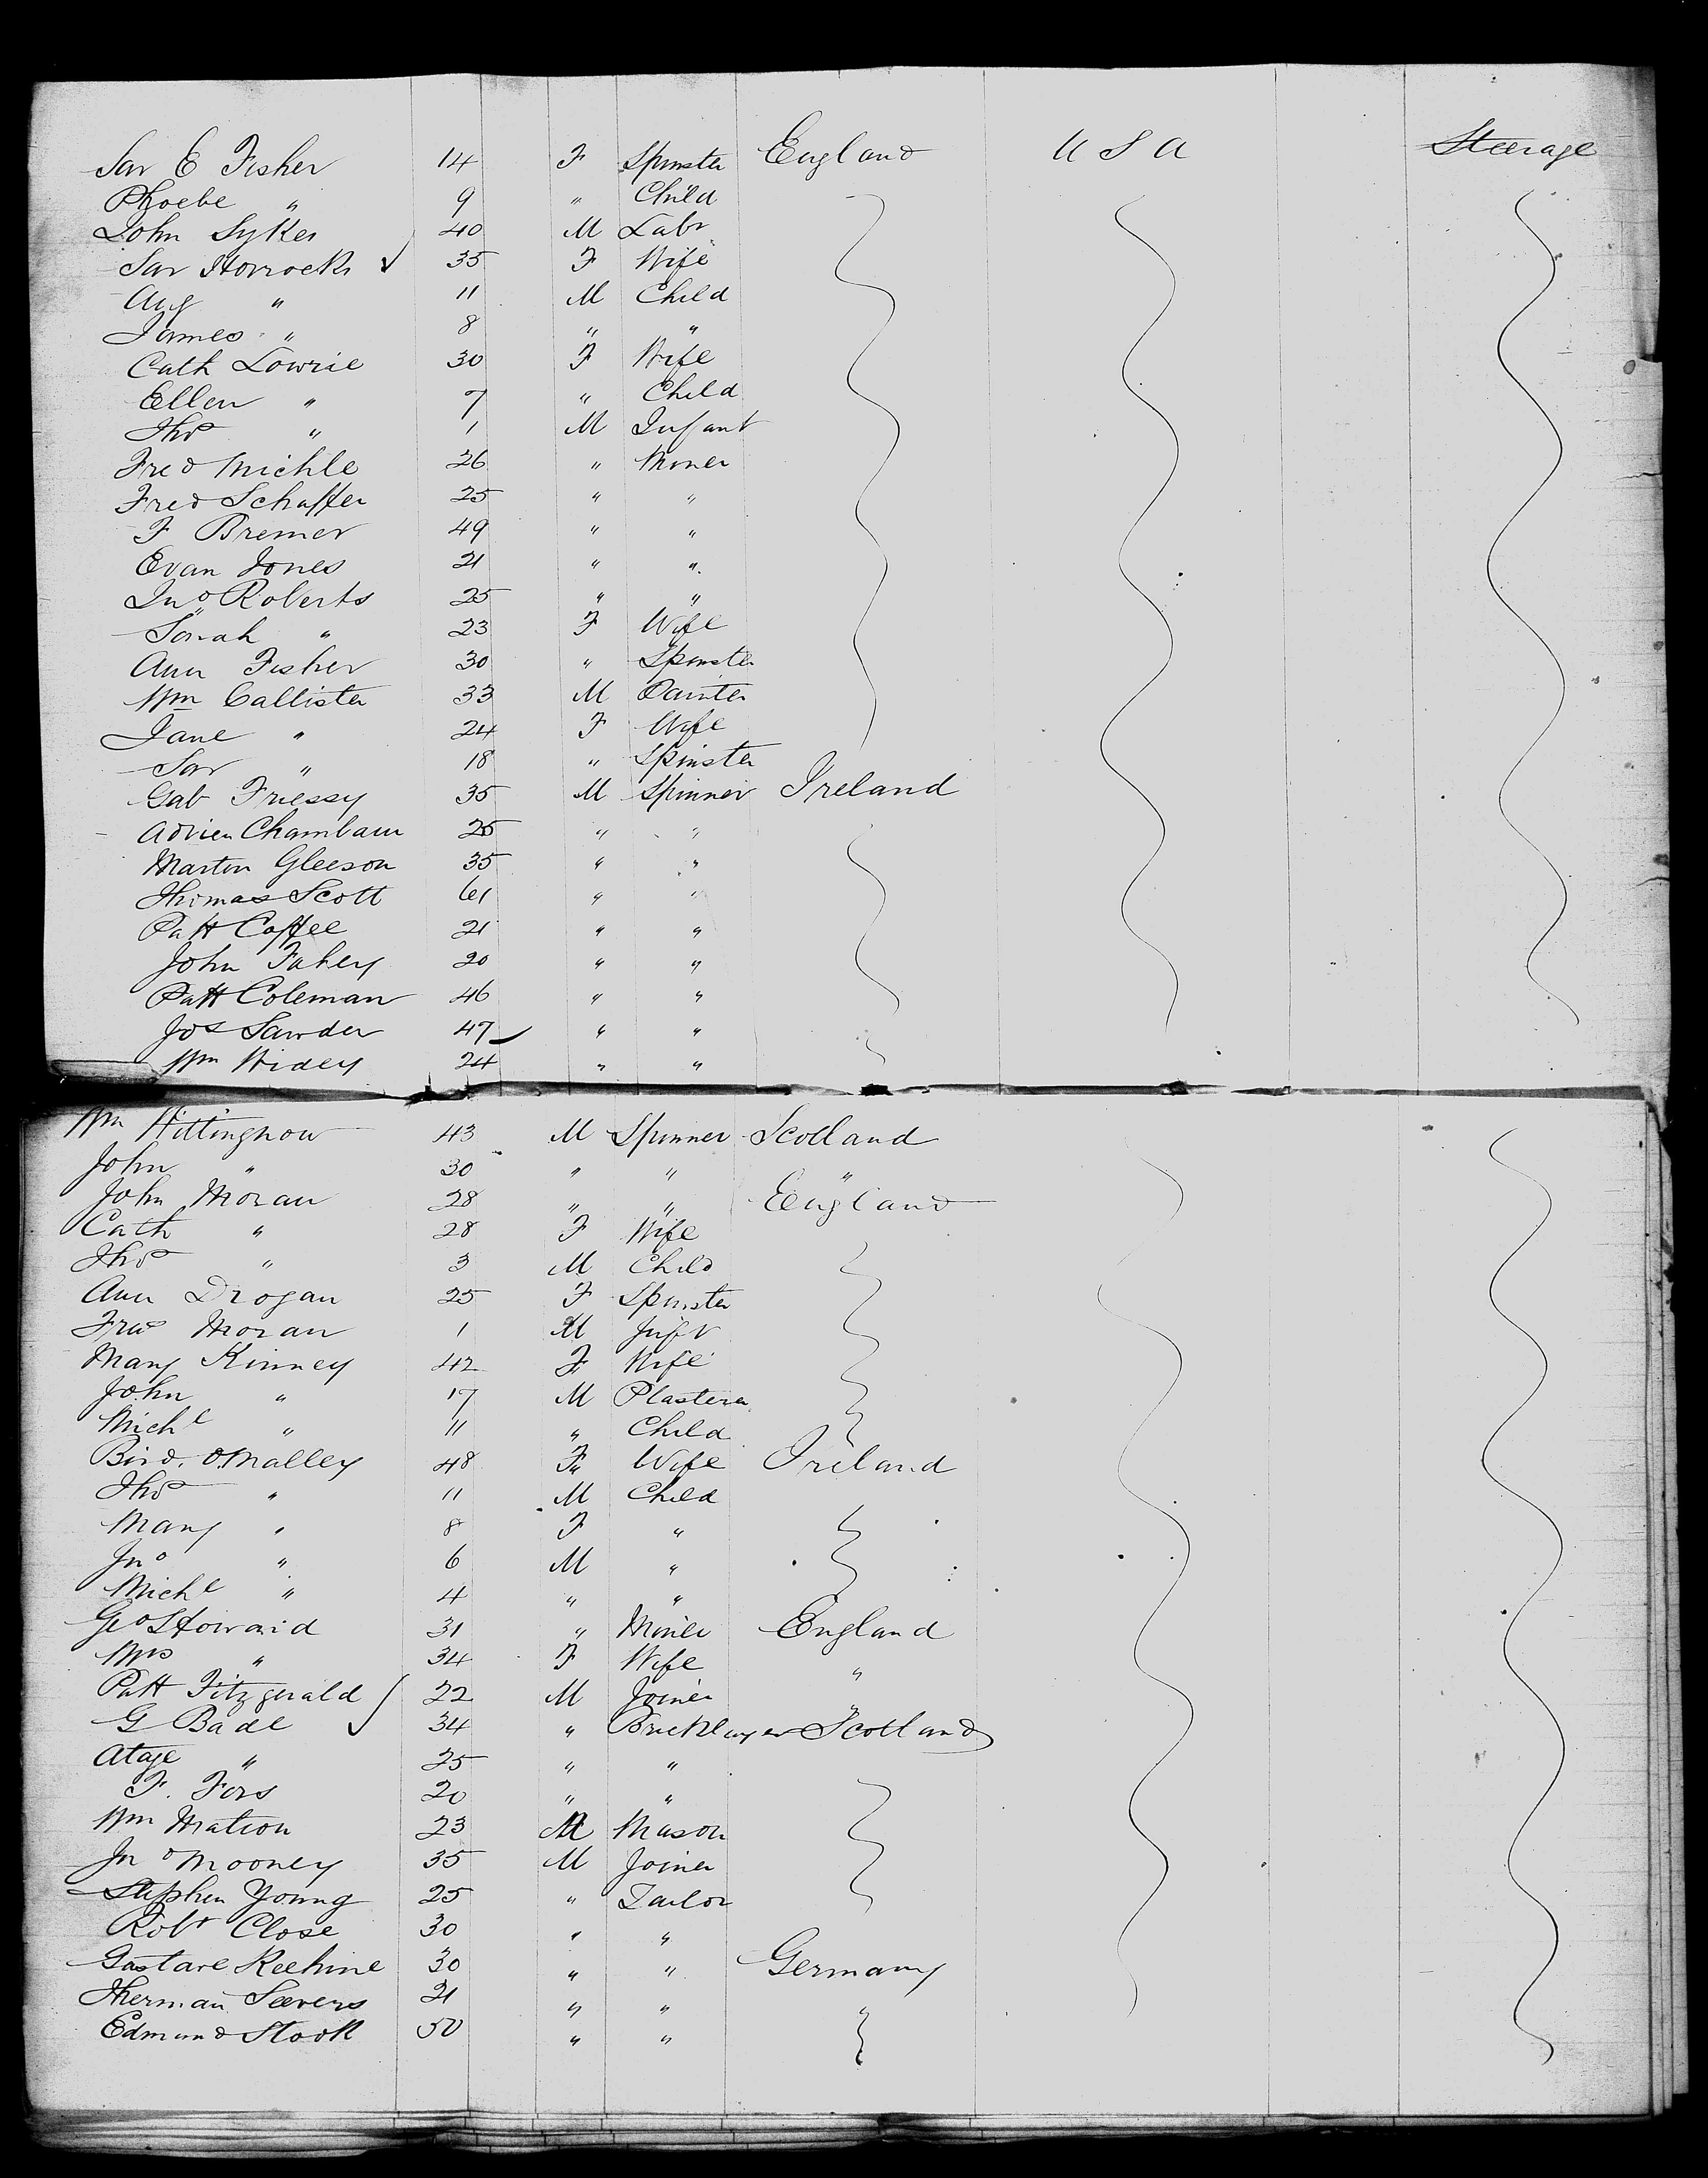 Sar E Fisher 14 F Spinster England U S A Steerage
Phoebe " 9 " Child
John Sykes 40 M Labr
Sar Horrocks 35 F Wife
Aug " 11 M Child
James " 8 " "
Cath Lowrie 30 F Wife
Ellen " 7 " Child
Thos " 1 M Infant
Fred Michle 26 " Miner
Fred Schaffer 25 " "
F Bremer 49 " "
Evan Jones 21 " "
Jno Roberts 25 " "
Sarah " 23 F Wife
Ann Fisher 30 " Spinster
Wm Callister 33 M Painter
Jane " 24 F Wife
Sar " 18 " Spinster
Gab Friessy 35 M Spinner Ireland
Adrien Chambaur 25 " "
Martin Gleeson 35 " "
Thomas Scott 61 " "
Patt Coffee 21 " "
John Fahey 20 " "
Patt Coleman 46 " "
Jos Sawder 47 " "
Wm Widey 24 " "
Wm Wittingnow 43 M Spinner Scotland
John " 30 " " "
John Moran 28 " " England
Cath " 28 F Wife
Thos " 3 M Child
Ann Drogan 25 F Spinster
Fras Moran 1 M Inft
Mary Kinney 42 F Wife
John " 17 M Plasterer
Michl " 11 " Child
Brid. O.Malley 48 F Wife Ireland
Thos " 11 M Child
Mary " 8 F "
Jno " 6 M "
Michl " 4 " "
Geo Howard 31 " Miner England
Mrs " 34 F Wife "
Patt Fitzgerald 22 M Joiner "
G Badl 34 " Bricklayer Scotland
" 25 " "
F. Fors 20 " "
Wm Matson 23 M Mason
Jno Mooney 35 M Joiner
Stephen Young 25 " Tailor
Robt Close 30 " "
Gustave Keehine 30 " " Germany
Herman Seevers 21 " " "
Edmund Stook 50 " "